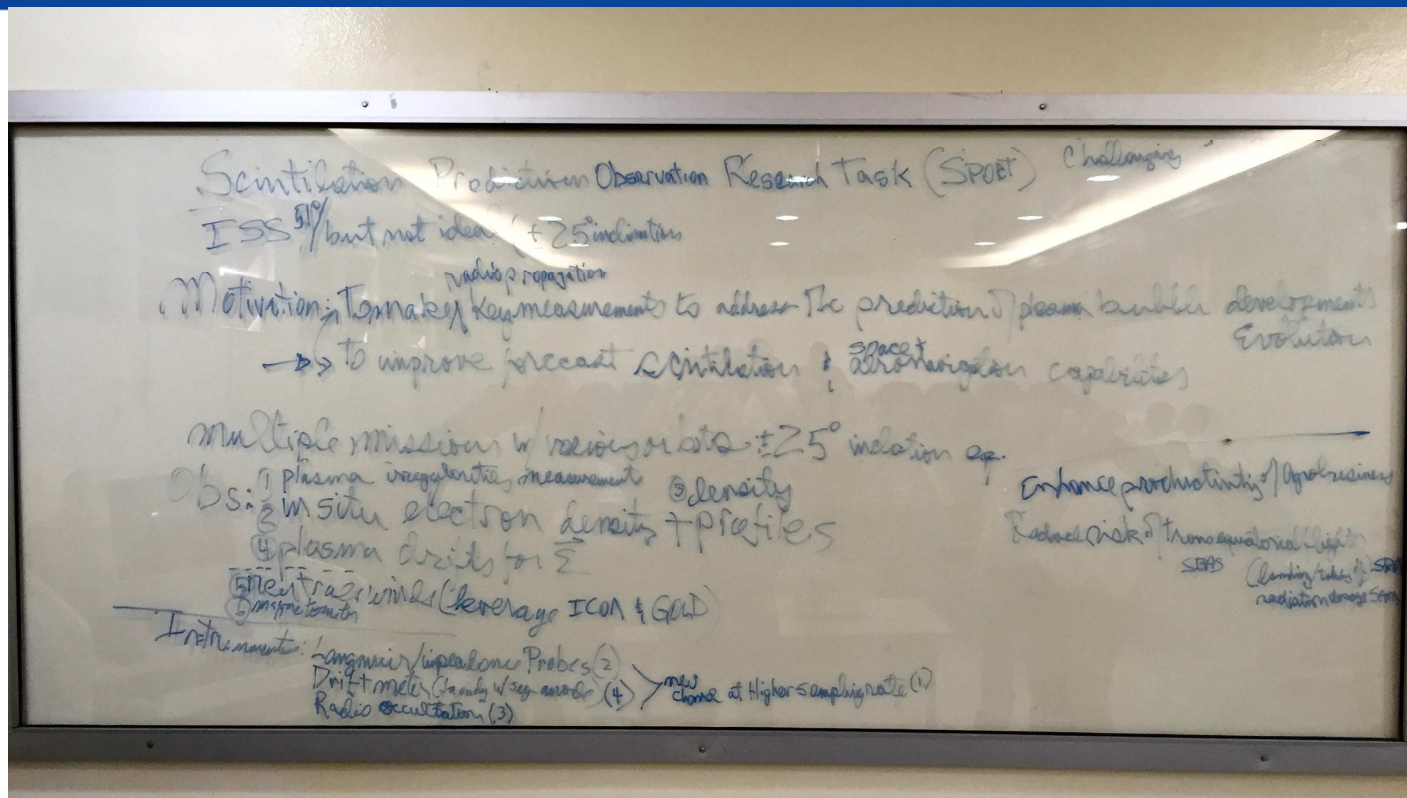 Scintilation Prediction Observation Research Task (SPORT) Challenging
ISS 51° / but not ideal ( ± 25° inclination
radio propagation
Motivation: To make key measurements to address the prediction of plasma bubble developments
Evolution
→ to improve forecast scintilation & space + aeronavigation capabilities
multiple missions w/ various orbits ± 25° inclation eq.
Obs: 1 plasma irregularities measurement
2 in situ electron density + profiles ③ density
④ plasma drifts for
⑤ neutral winds (leverage ICON & GOLD)
⑥ magnetometer
Enhance productivity of Agrobusiness
risk of transequatorial flights
(landing/takeoff
radiation damage
Instruments: Langmuir/impedance Probes (2)
Drift meter (4)
Radio occultation (3)
new at Higher sampling rate (1)